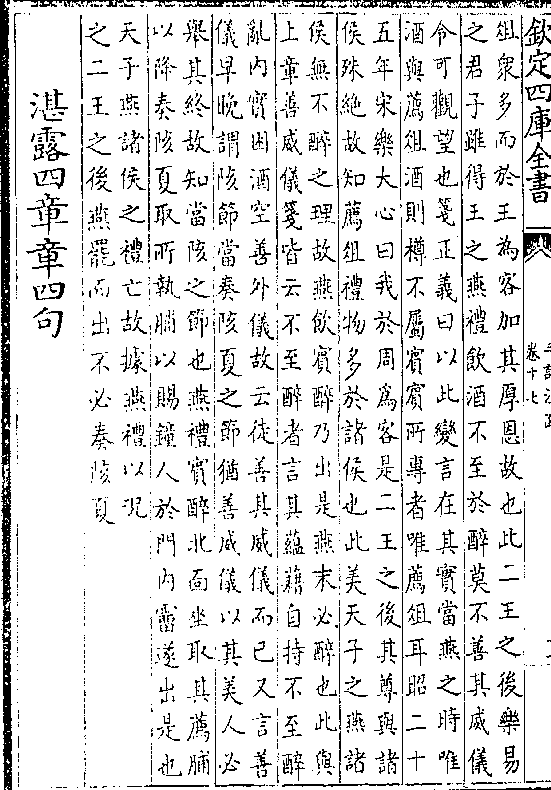 欽定四庫全書
卷十七
俎衆多而於王為客加其厚恩故也此二王之後樂易
之君子雖得王之燕禮飲酒不至於醉莫不善其威儀
令可觀望也箋正義曰以此變言在其實當燕之時唯
酒與薦俎酒則樽不屬賓賓所專者唯薦俎耳昭二十
五年宋樂大心曰我於周爲客是二王之後其尊與諸
侯殊絶故知薦俎禮物多於諸侯也此美天子之燕諸
侯無不醉之理故燕飲賓醉乃出是燕末必醉也此與
上章善威儀箋皆云不至醉者言其藴藉自持不至醉
亂内實困酒空善外儀故云徒善其威儀而已又言善
儀早晚謂陔節當奏陔夏之節猶善威儀以其美人必
舉其終故知當陔之節也燕禮賓醉北面坐取其薦脯
以降奏陔夏取所執脯以賜鐘人於門内霤遂出是也
天子燕諸侯之禮亡故據燕禮以况
之二王之後燕罷而出不必奏陔夏
湛露四章章四句